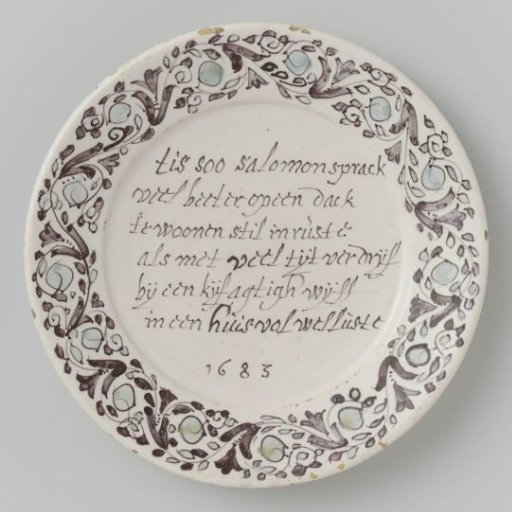 tis soo salomon sprack
veel beeter op een dack
te woonen stil in rúste
als met veel tÿt verdrÿff
bÿ een kÿfagtigh wÿff
in een húús vol wellúste
1683